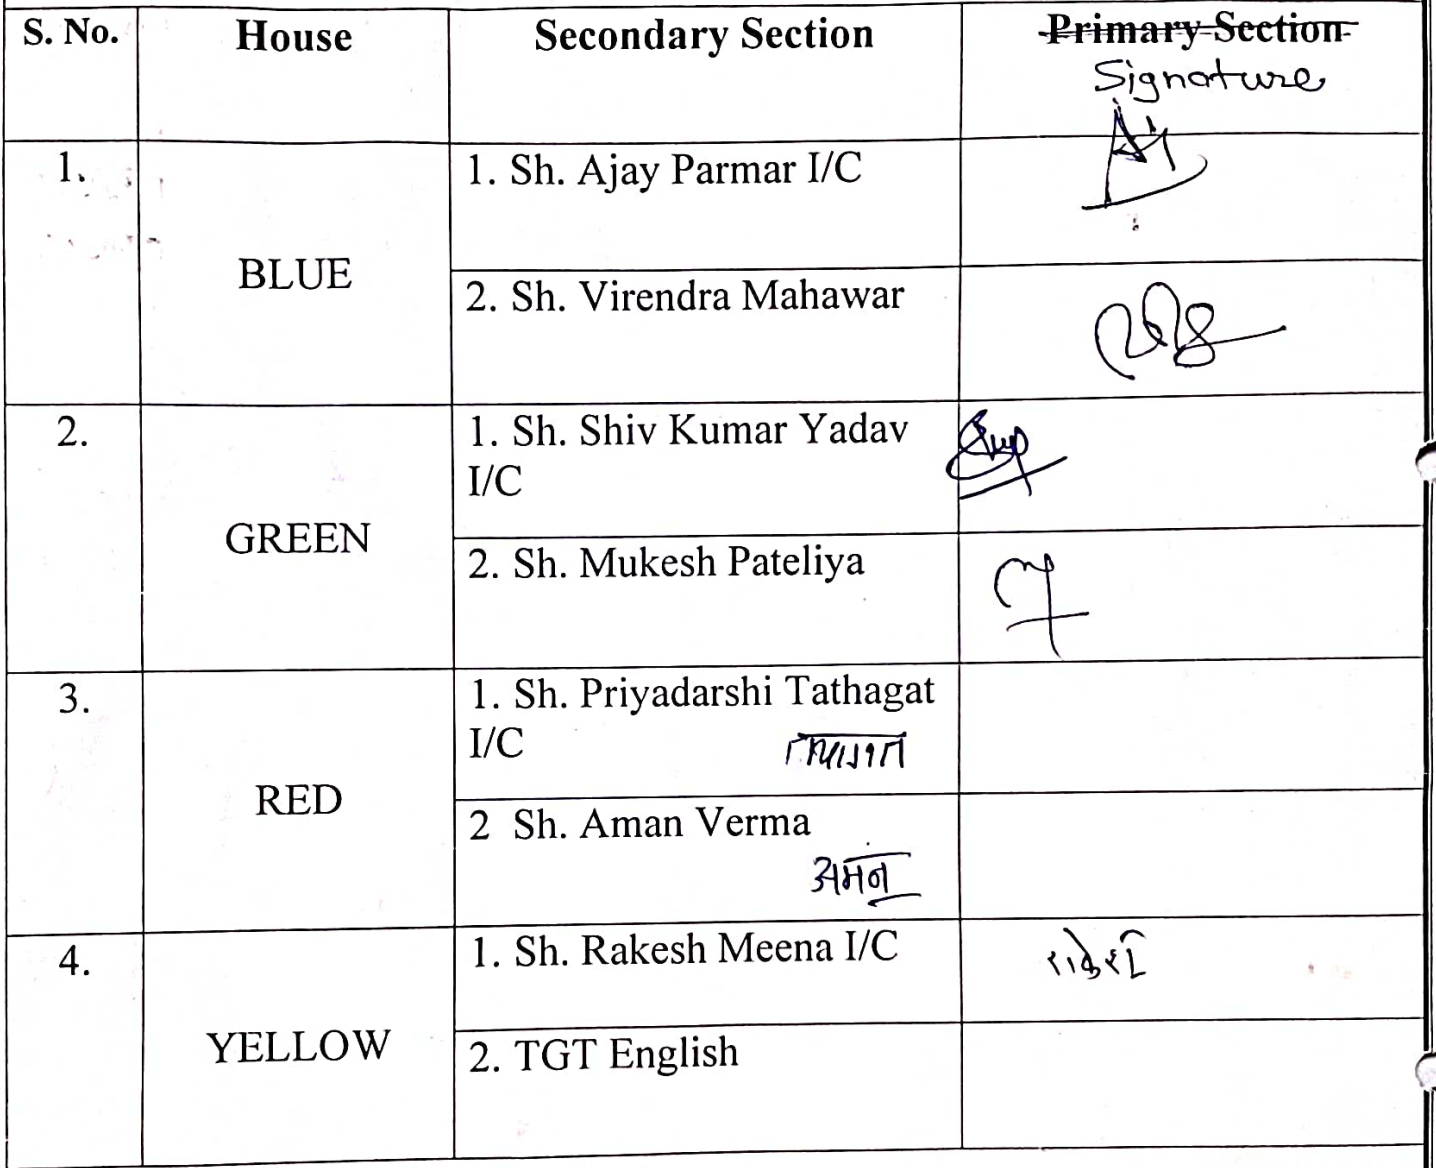 S. No. House Secondary Section Primary Section
Signature
1. BLUE 1. Sh. Ajay Parmar I/C
2. Sh. Virendra Mahawar
2. GREEN 1. Sh. Shiv Kumar Yadav
I/C
2. Sh. Mukesh Pateliya
3. RED 1. Sh. Priyadarshi Tathagat
I/C
2 Sh. Aman Verma
अमन
4. YELLOW 1. Sh. Rakesh Meena I/C
राकेश
2. TGT English